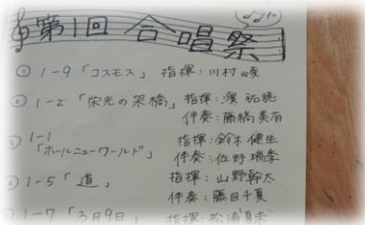 第1回 合唱祭
① 1-9「コスモス」 指揮:川村
② 1-2「栄光の架橋」 指揮:濱 祐穂
伴奏:藤橋美有
1-1
「ホールニューワールド」 指揮:鈴木 健生
伴奏:佐野 瑞季
④ 1-5「道」 指揮:山野 幹太
伴奏:藤田千夏
1-7「3月9日」 指揮:松浦